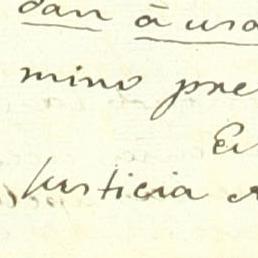 dan á usa
mino pre
En
Justicia